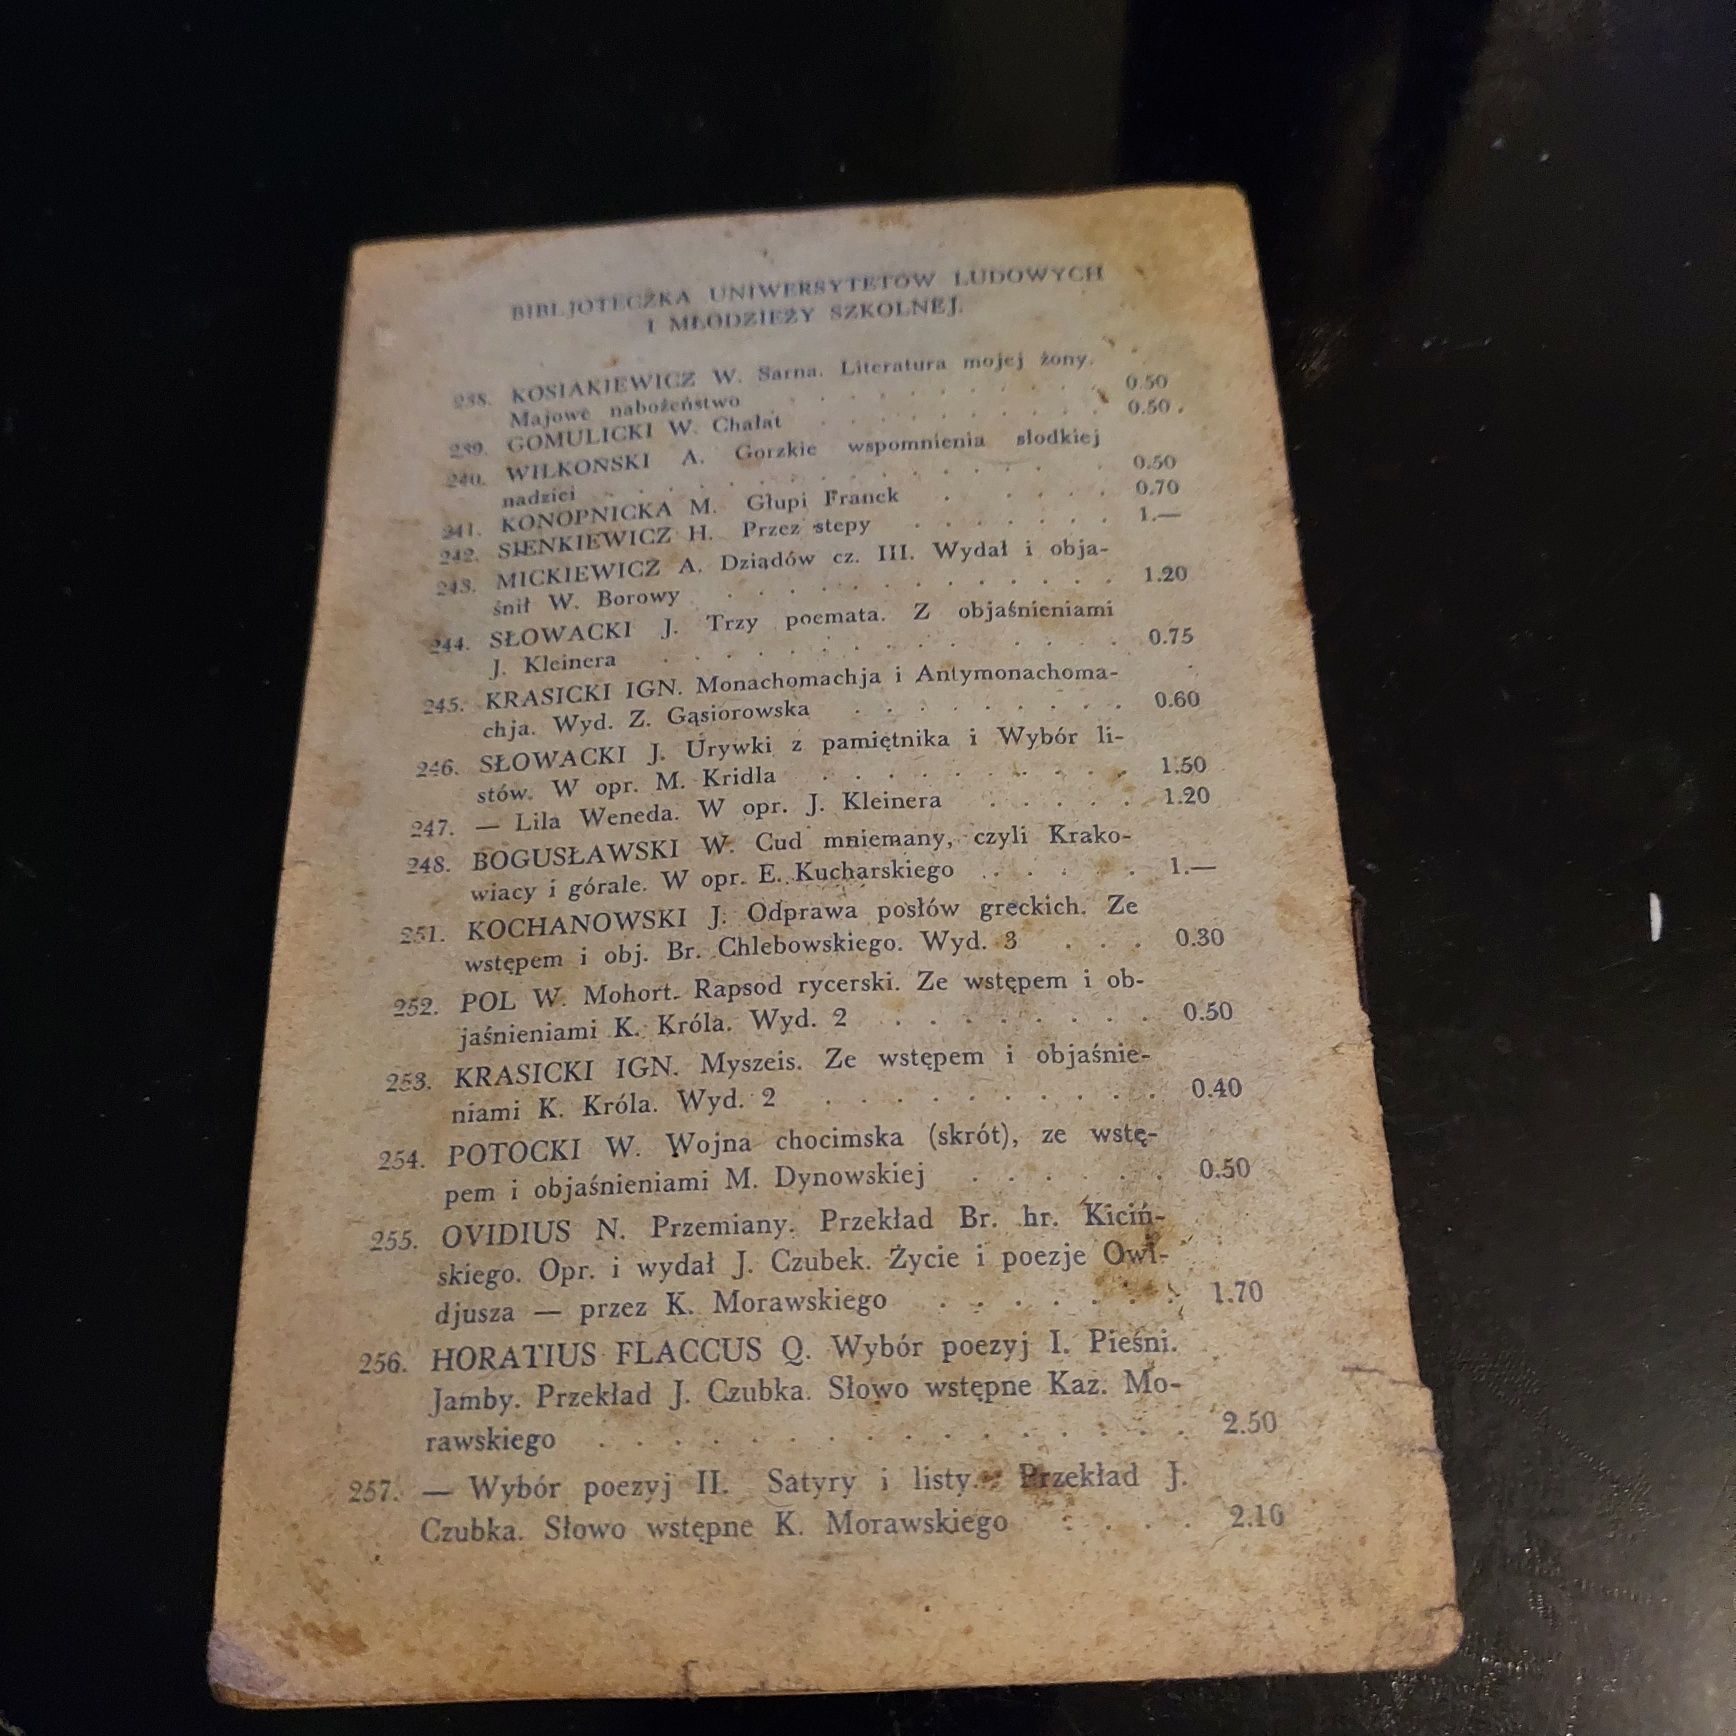 BIBLJOTECZKA UNIWERSYTETÓW LUDOWYCH
I MŁODZIEŻY SZKOLNEJ.
238. KOSIAKIEWICZ W. Sarna. Literatura mojej żony.
Majowe nabożeństwo . . . . . . . . . . 0.50
239. GOMULICKI W. Chałat . . . . . . . . . 0.50
240. WILKOŃSKI A. Gorzkie wspomnienia słodkiej
nadziei . . . . . . . . . . . . . 0.50
241. KONOPNICKA M. Głupi Franek . . . . . . 0.70
242. SIENKIEWICZ H. Przez stepy . . . . . . . 1.—
243. MICKIEWICZ A. Dziadów cz. III. Wydał i obja-
śnił W. Borowy . . . . . . . . . . . 1.20
244. SŁOWACKI J. Trzy poemata. Z objaśnieniami
J. Kleinera . . . . . . . . . . . . . 0.75
245. KRASICKI IGN. Monachomachja i Antymonachoma-
chja. Wyd. Z. Gąsiorowska . . . . . . . . . 0.60
246. SŁOWACKI J. Urywki z pamiętnika i Wybór li-
stów. W opr. M. Kridla . . . . . . . . . . 1.50
247. — Lila Weneda. W opr. J. Kleinera . . . . . 1.20
248. BOGUSŁAWSKI W. Cud mniemany, czyli Krako-
wiacy i górale. W opr. E. Kucharskiego . . . . . 1.—
251. KOCHANOWSKI J. Odprawa posłów greckich. Ze
wstępem i obj. Br. Chlebowskiego. Wyd. 3 . . . 0.30
252. POL W. Mohort. Rapsod rycerski. Ze wstępem i ob-
jaśnieniami K. Króla. Wyd. 2 . . . . . . . . 0.50
253. KRASICKI IGN. Myszeis. Ze wstępem i objaśnie-
niami K. Króla. Wyd. 2 . . . . . . . . . . 0.40
254. POTOCKI W. Wojna chocimska (skrót), ze wstę-
pem i objaśnieniami M. Dynowskiej . . . . . . 0.50
255. OVIDIUS N. Przemiany. Przekład Br. hr. Kiciń-
skiego. Opr. i wydał J. Czubek. Życie i poezje Owi-
djusza — przez K. Morawskiego . . . . . . . 1.70
256. HORATIUS FLACCUS Q. Wybór poezyj I. Pieśni.
Jamby. Przekład J. Czubka. Słowo wstępne Kaz. Mo-
rawskiego . . . . . . . . . . . . . . . . 2.50
257. — Wybór poezyj II. Satyry i listy. Przekład J.
Czubka. Słowo wstępne K. Morawskiego . . . . 2.10